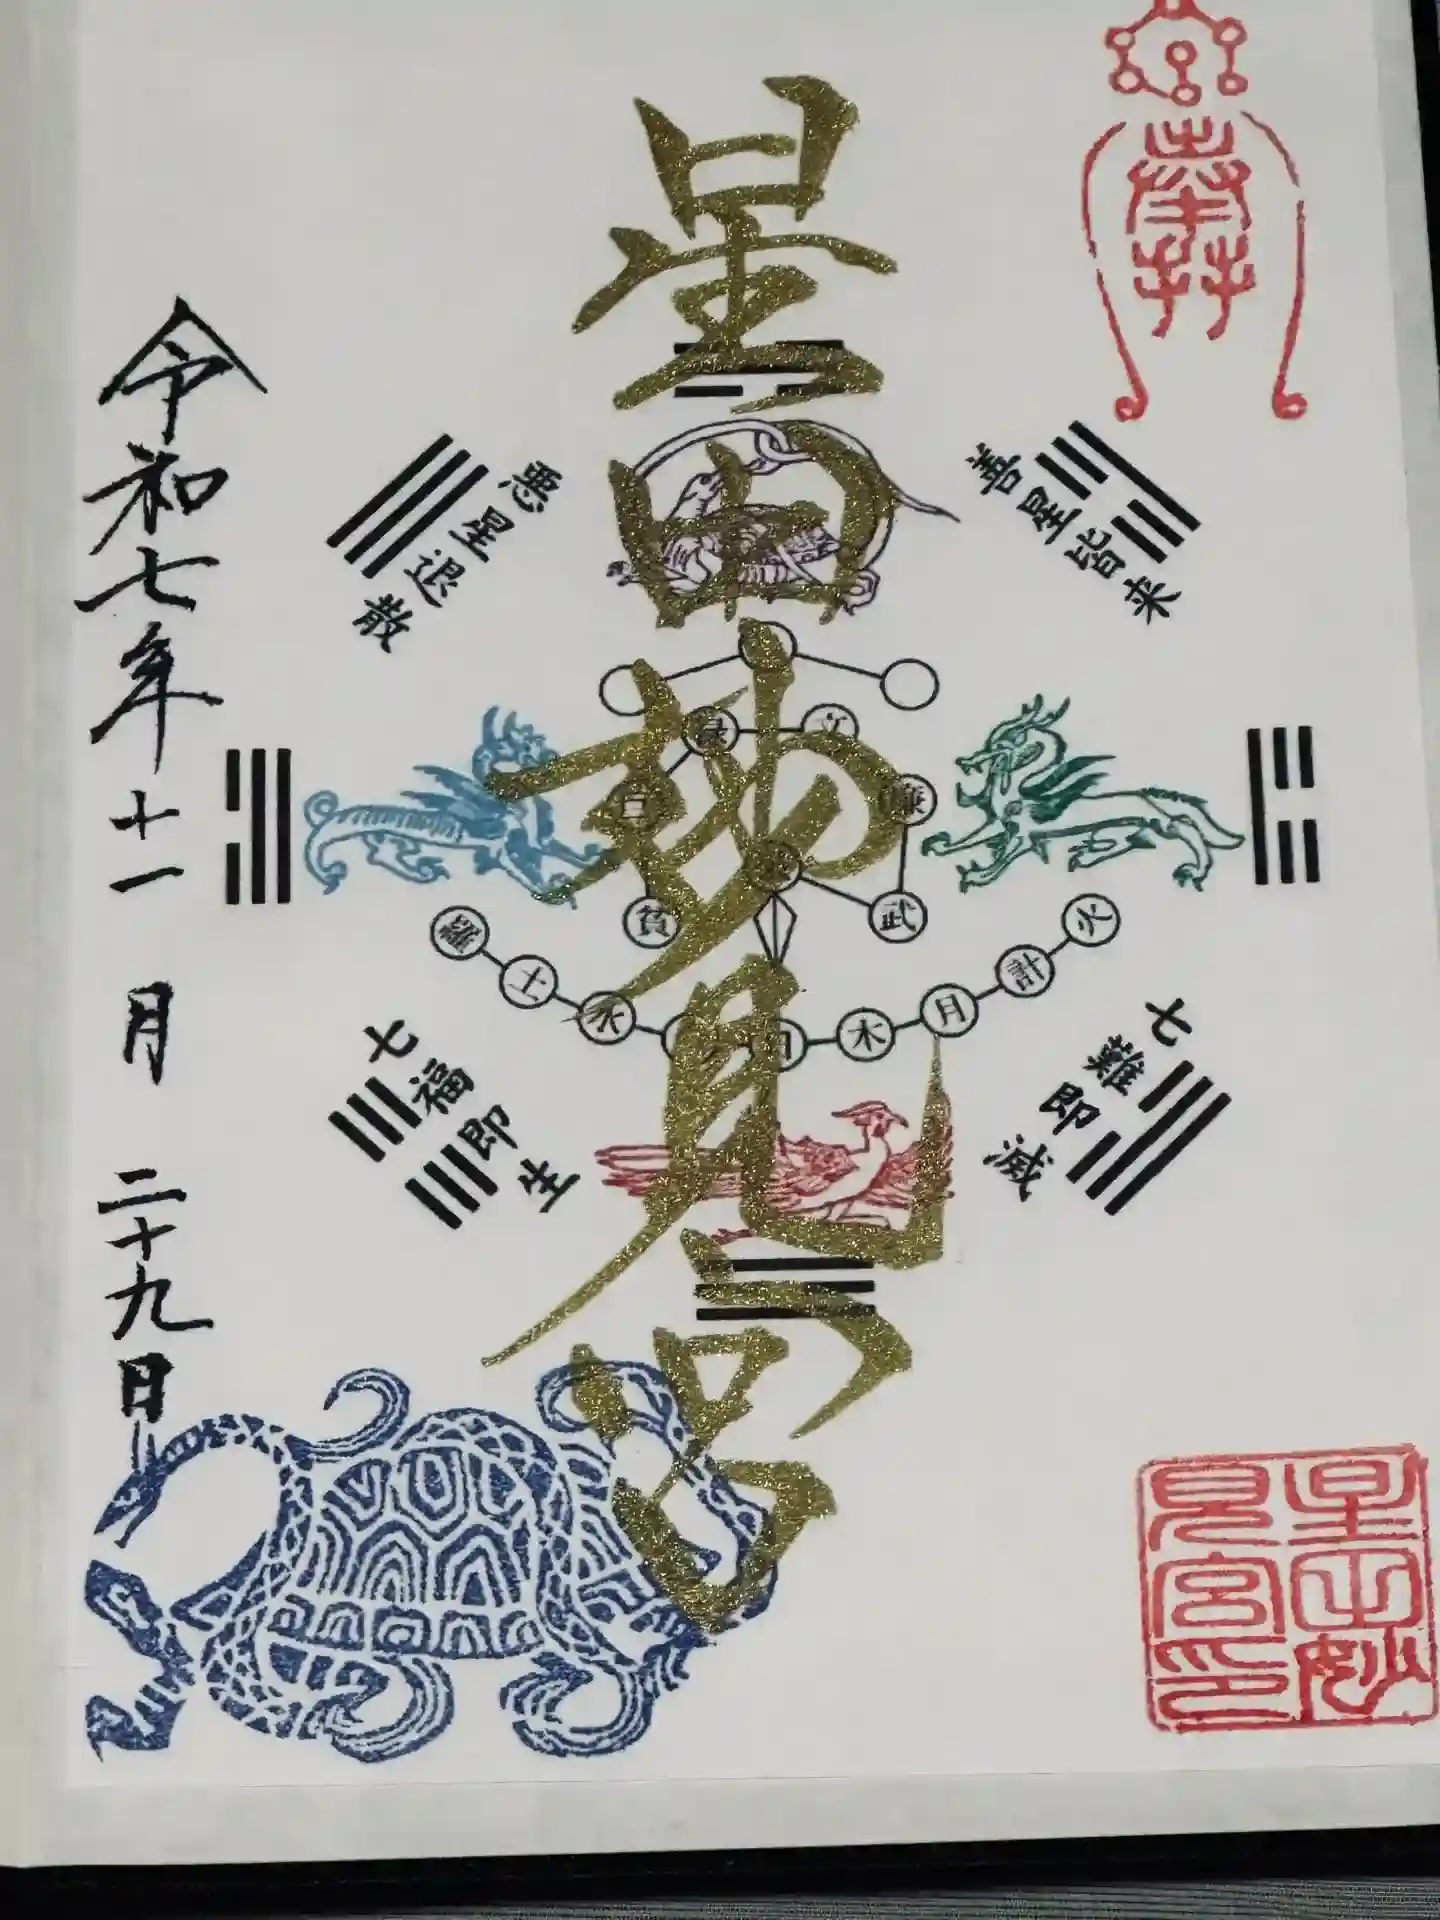 星田妙見宮
善星皆来
悪星退散
七難即滅
七福即生
禄
文
巨
廉
貪
武
羅
土
水
日
木
月
計
火
令和七年十一月二十九日
星田妙見宮印